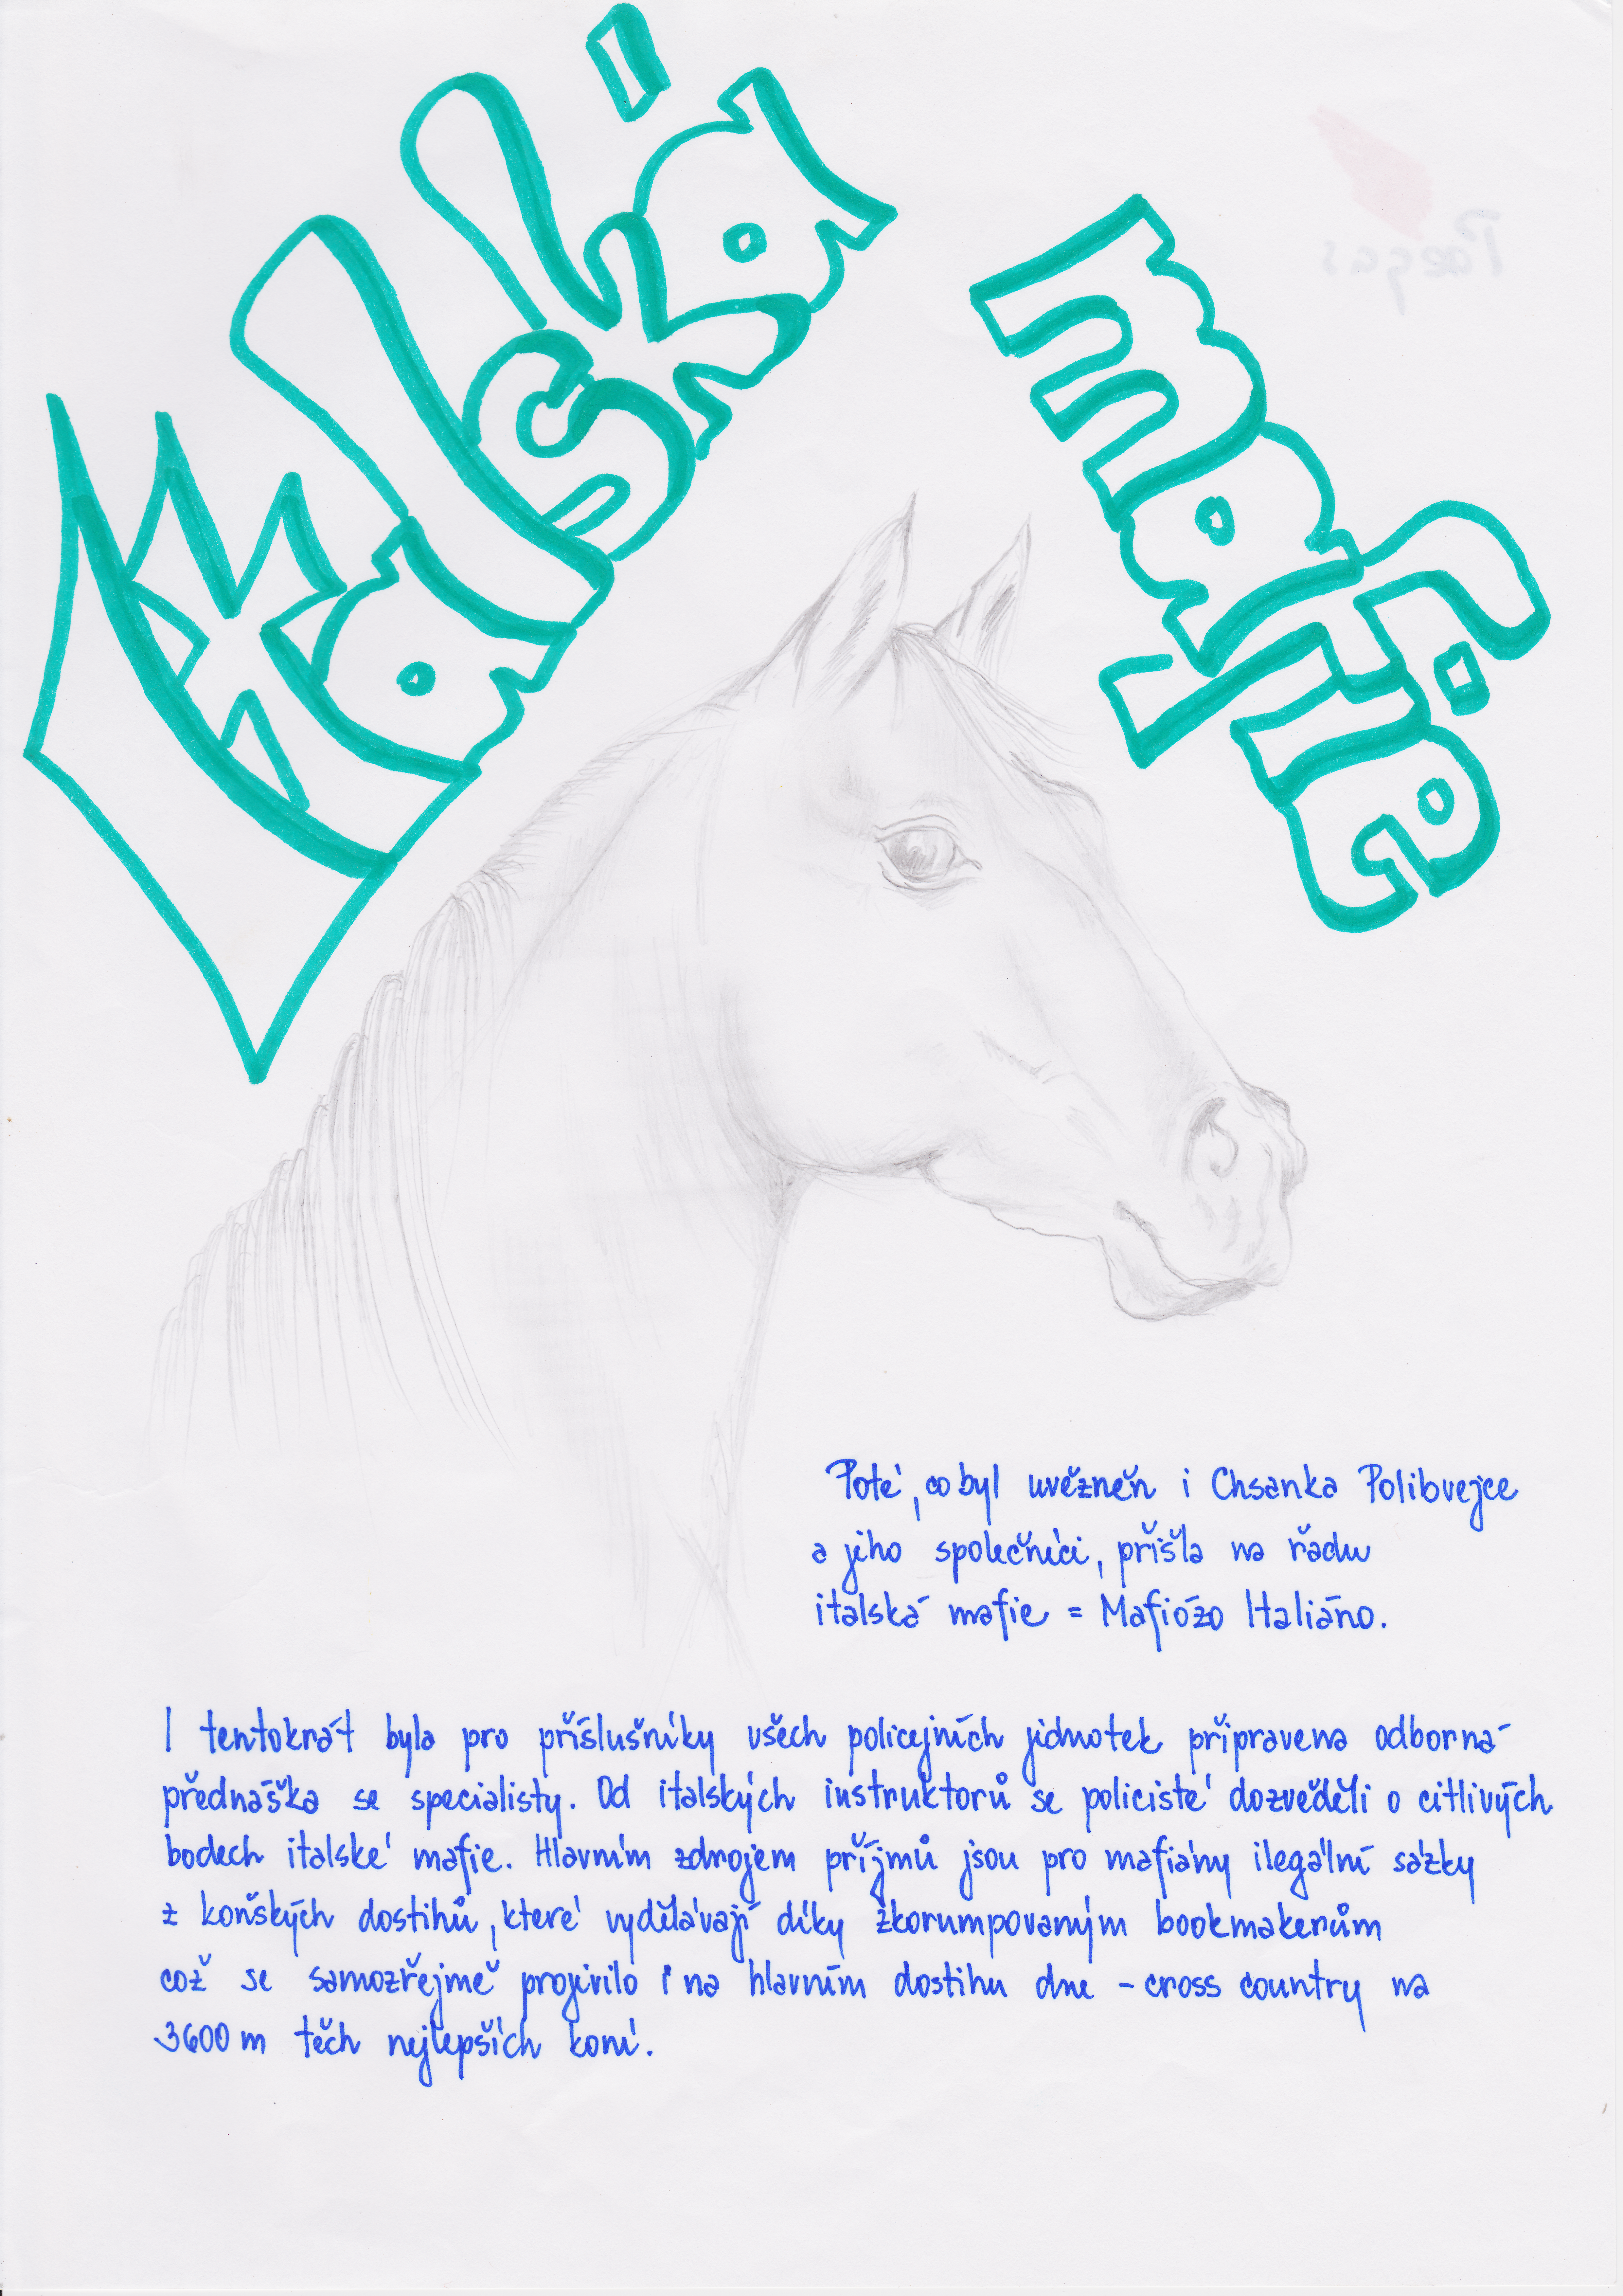 Italská
mafie
Poté, co byl uvězněn i Chsanka Polibvejce
a jeho společníci, přišla na řadu
italská mafie = Mafiózo Italiáno.
I tentokrát byla pro příslušníky všech policejních jednotek připravena odborná
přednáška se specialisty. Od italských instruktorů se policisté dozvěděli o citlivých
bodech italské mafie. Hlavním zdrojem příjmů jsou pro mafiány ilegální sázky
z koňských dostihů, které vydělávají díky zkorumpovaným bookmakerům
což se samozřejmě projevilo i na hlavním dostihu dne - cross country na
3600 m těch nejlepších koní.